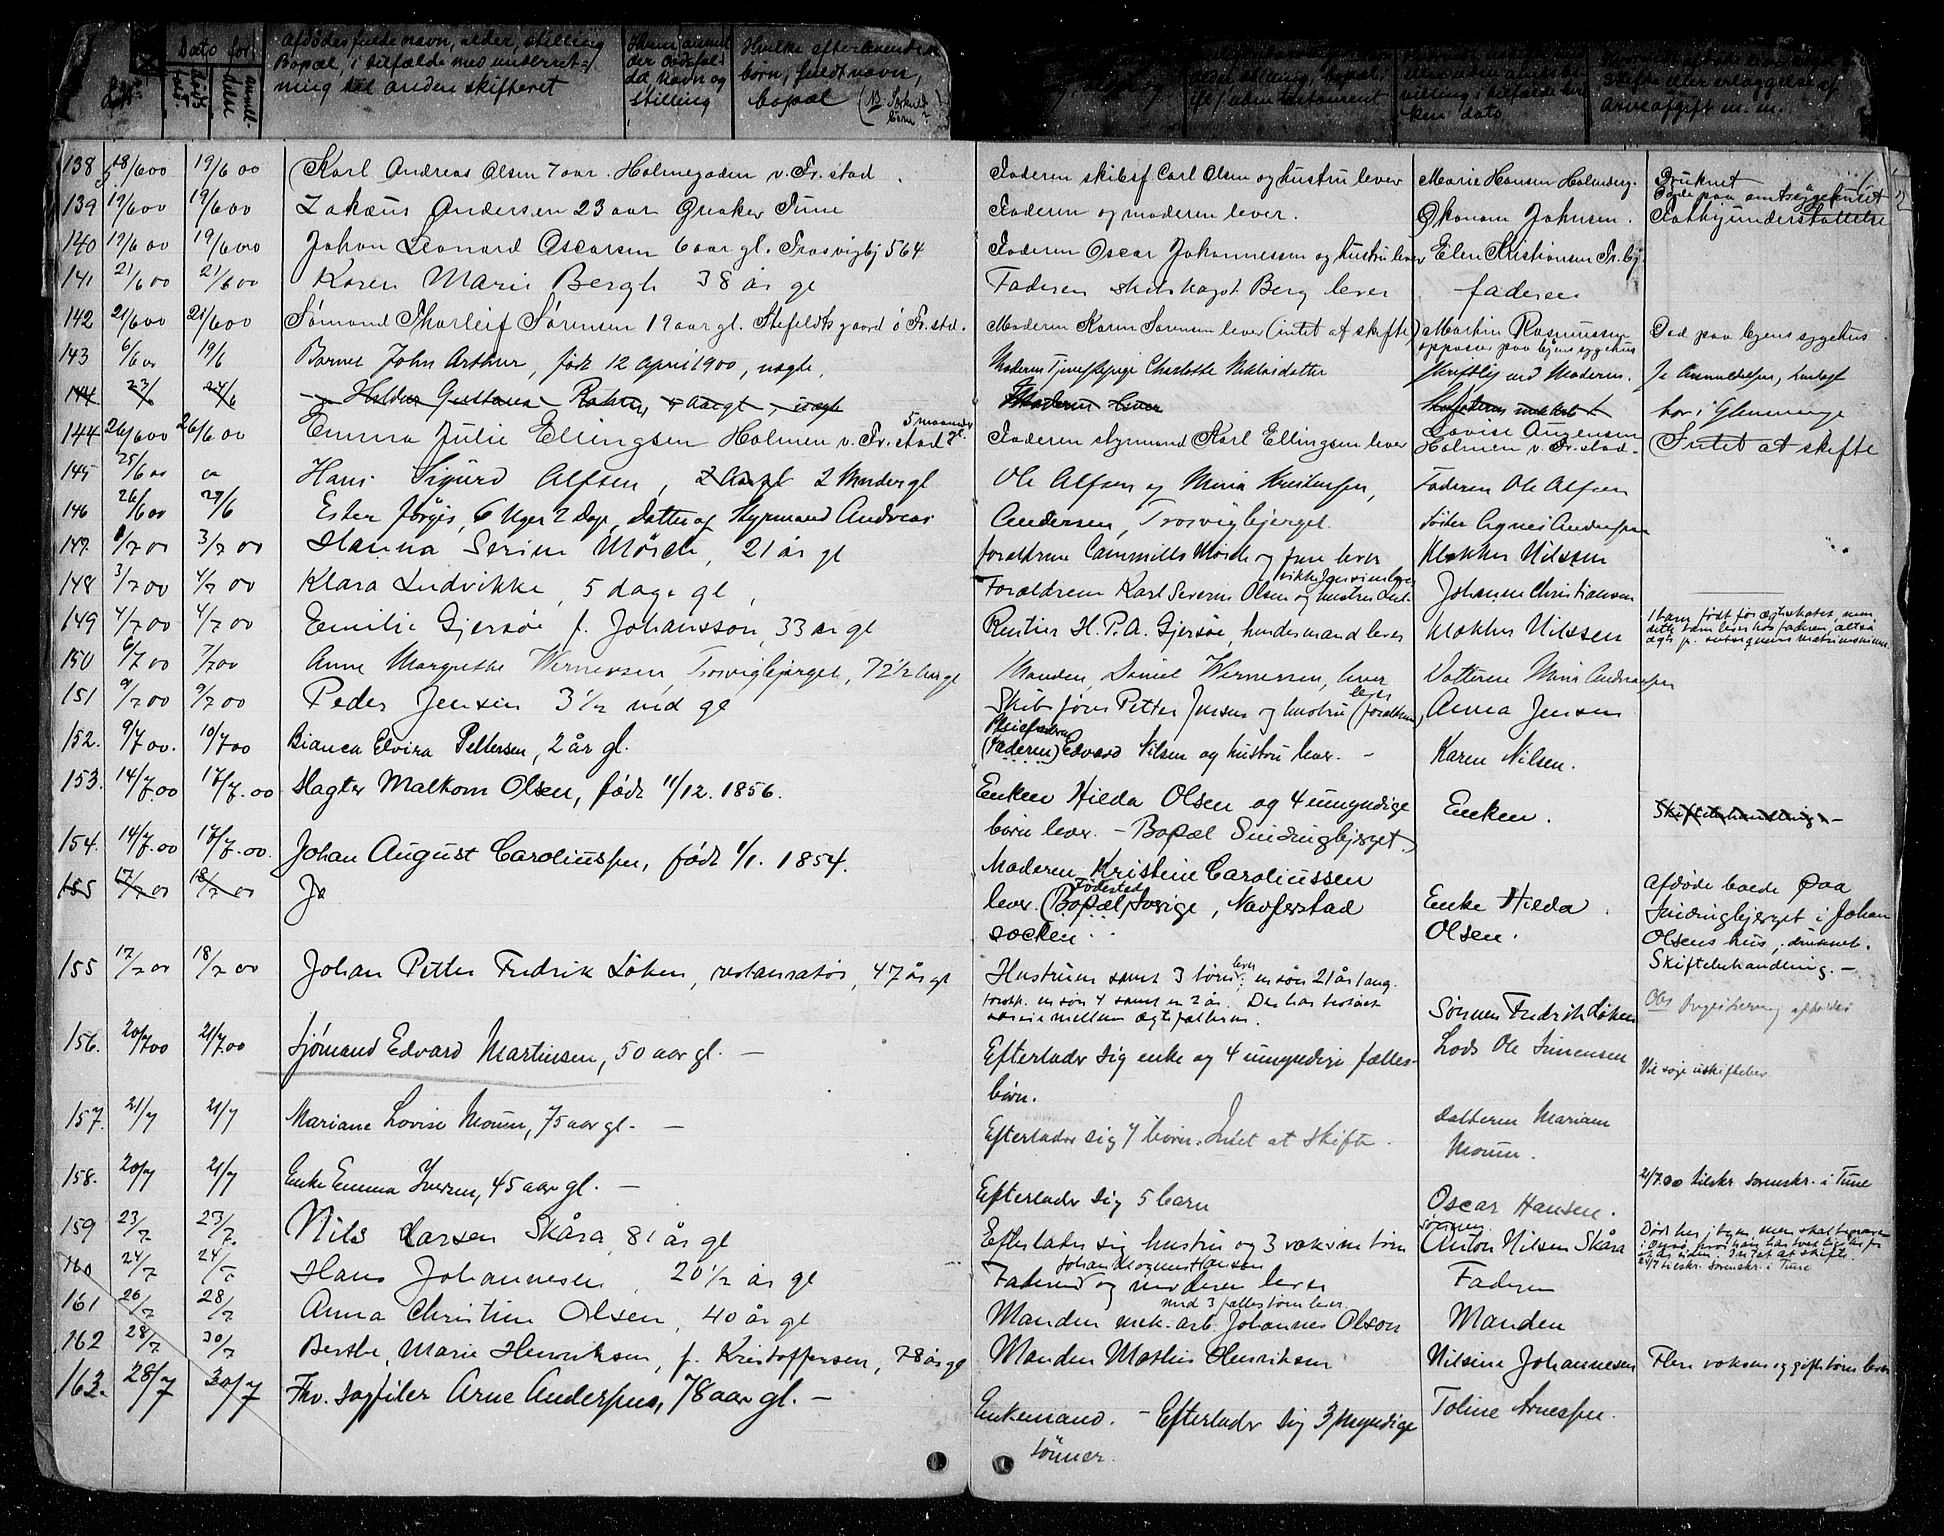 Dato for
Afdødes fulde navn, alder, stilling
Bopæl, i tilfælde med underret-
ning til anden skifteret
døds-
fald
anmel-
delse
Hvem anmel-
der dødsfal-
det navn og
stilling
Hvilke efterlevende
børn, fuldt navn,
bopæl (NB Særkuld-
børn?
ken dato
skifte eller erlæggelse af
arveafgift m. m.
138 18/6 00 19/6 00 Karl Andreas Olsen 7 aar. Holmegaden v. Fr.stad. Faderen skibsf Carl Olsen og hustru lever Marie Hansen Holmberg. Druknet
139 19/6 00 19/6 00 Zakæus Andersen 23 aar Greaker Tune Faderen og moderen lever. Økonom Johnsen. Døde paa amtssygehuset
Fattigunderstøttelse
140 19/6 00 19/6 00 Johan Leonard Oscarsen 6 aar gl. Trosvigbj 564 Faderen Oscar Johannessen og hustru lever Elen Kristiansen Fr.bj.
141 21/6 00 21/6 00 Karen Marie Bergh 38 år gl Faderen skibskapt Berg lever faderen
142 21/6 00 21/6 00 Sømand Thorleif Sørensen 19 aar gl. Stefeldtsgaard i Fr.stad. Moderen Karen Sørensen lever (intet at skifte) Martin Rasmussen Død paa byens sygehus
oppasser paa byens sygehus
143 6/6 00 19/6 Barnet John Arthur, født 12 april 1900, uægte, Moderen Tjenestepige Charlotte Niklisdatter Skriftlig ved Moderen. Je Anmeldelsen, henlagt
144 23/6 24/6 Hilda Gustava Moderen lever bor i Glemminge
144 26/6 00 26/6 00 Emma Julie Ellingsen Holmen v. Fr.stad 5 maaneder gl. Faderen styrmand Karl Ellingsen lever Lovise Jørgensen
Holmen v. Fr.stad. Intet at skifte
145 25/6 00 Hans Sigurd Alfsen, 2 Maaneder gl Ole Alfsen og Maria Kristensen, Faderen Ole Alfsen
146 26/6 00 29/6 Ester Jørgis, 6 Uger 2 Dage, Datter af Styrmand Andreas Andersen, Trosvigbjerget. Søster Agnes Andersen
147. 1/7 00 3/7 00 Hanna Serine Mørch, 21 år gl forældrene Cammillo Mørch og frue lever Klokker Nilssen
148 3/7 00 4/7 00 Klara Ludvikke, 5 dage gl, Forældrene Karl Severin Olsen og hustru Lud-
vikke Jensine lever Johanne Christiansen
149 4/7 00 4/7 00 Emilie Gjersøe f. Johansson, 33 år gl Rentier H. P. A. Gjersøe, hendes mand lever Klokker Nilssen 1 barn født før ægteskabet, men
dette barn lever hos faderen, altså
150 6/7 00 7/7 00 Anne Margrethe Wernersen, Trosvigbjerget, 72 1/2 Aar gl Manden, Daniel Wernersen, lever Datteren Maria Andreasen
151 9/7 00 9/7 00 Peder Jensen 3 1/2 md gl Skibsfører Petter Jensen og hustru (forældrene) lever Anna Jensen
152. 9/7 00. 10/7 00 Bianca Elvira Pettersen, 2 år gl. Pleiefaderen
(Faderen) Edvard Nilsen og hustru lever. – Karen Nilsen.
153. 14/7.00 17/7.00 Slagter Malkom Olsen, født 11/12. 1856. Enken Hilda Olsen og 4 umyndige
børn lever. – Bopæl Smidringbjerget. Enken. Skiftebehandling –
154. 14/7.00 17/7.00. Johan August Caroliussen, født 1/1. 1854. Moderen Kristine Caroliussen
lever. (Bopæl Fødested Sverige, Naverstad
socken. Enke Hilda
Olsen. afdøde boede paa
Smidringbjerget i Johan
Olsens hus, druknet.
Skiftebehandling. –
155 17/7 00 18/7 00 Jo
155 17/7 00 18/7 00 Johan Petter Fredrik Løken, restauratør, 47 år gl Hustruen samt 3 børn lever: en søn 21 år
en søn 4 samt en 2 år. Der har bestået
særeie mellem ægtefællerne. Sønnen Fredrik Løken
156. 20/7 00 21/7.00 Sjømand Edvard Martinsen, 50 aar gl. – Efterlader sig enke og 4 umyndige fælles-
børn. Lods Ole Simensen Vil søge uskiftebev.
157. 21/7 21/7 Mariane Lovise Moum, 75 aar gl. – Efterlader sig 7 børn. Intet at skifte. Datteren Mariane
Moum.
158. 20/7 21/7 Enke Emma Iversen, 45 aar gl. – Efterlader sig 5 barn Oscar Hansen. 21/7.00 tilskr. sorenskr. i Tune
159 23/7 23/7. Nils Larsen Skåra, 81 år gl Efterlader sig hustru og 3 voksne børn Sønnen
Anton Nilsen Skåra Død her i byen, men skal begraves
Intet at skifte.
24/7 tilskr. sorenskr. i Tune
160 24/7 24/7 Hans Johannesen, 20 1/2 år gl Johan Magnus Hansen
Faderen og moderen lever Faderen
161 26/7 28/7 Anna Christine Olsen, 40 år gl med 3 fællesbørn lever
Manden mek. arb. Johannes Olson Manden
162 28/7 30/7 Berthe Marie Henriksen, f. Kristoffersen, 78 år gl Manden Mathis Henriksen Nilsine Johannesen Flere voksne og gifte børn lever
163. 28/7 30/7 Fhv. sagfiler Arne Anderssen, 78 aar gl. – Enkemand. – Efterlader sig 3 myndige
sönner. Toline Arnessen.